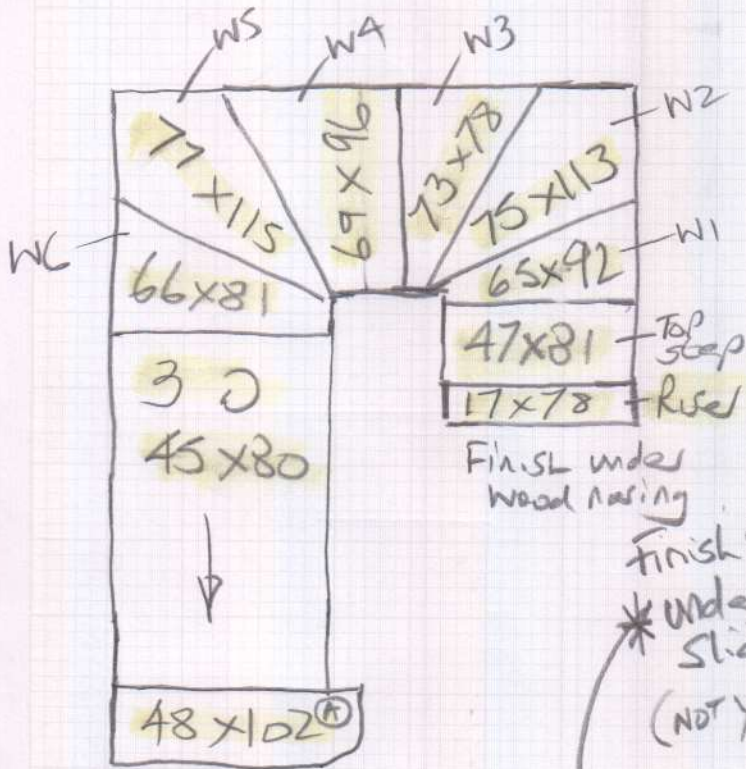 W5
W4
W3
W2
W1
W6
77 x 115
69 x 96
73 x 78
75 x 113
65 x 92
66 x 81
47 x 81
Top step
17 x 78
Riser
3 0
45 x 80
Finish under
wood nosing
Finish
* unde
Slid
(NOT Y
48 x 102 A